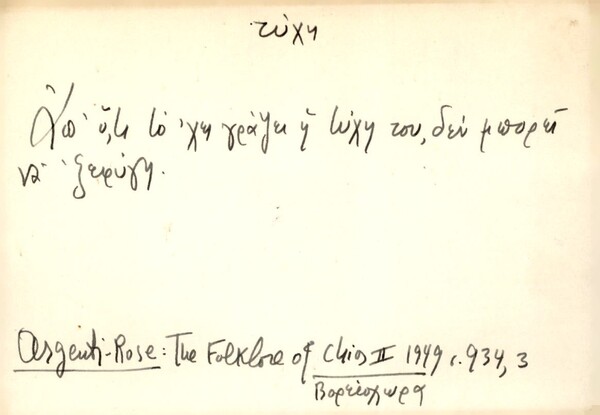 τύχη
Ἀπ' ὅ,τι τὄ 'χει γράψει ἡ τύχη του, δὲν μπορεῖ
νὰ 'ξεφύγῃ.
Argenti-Rose: The Folklore of Chios II 1949 σ. 934, 3
Βορειόχωρα